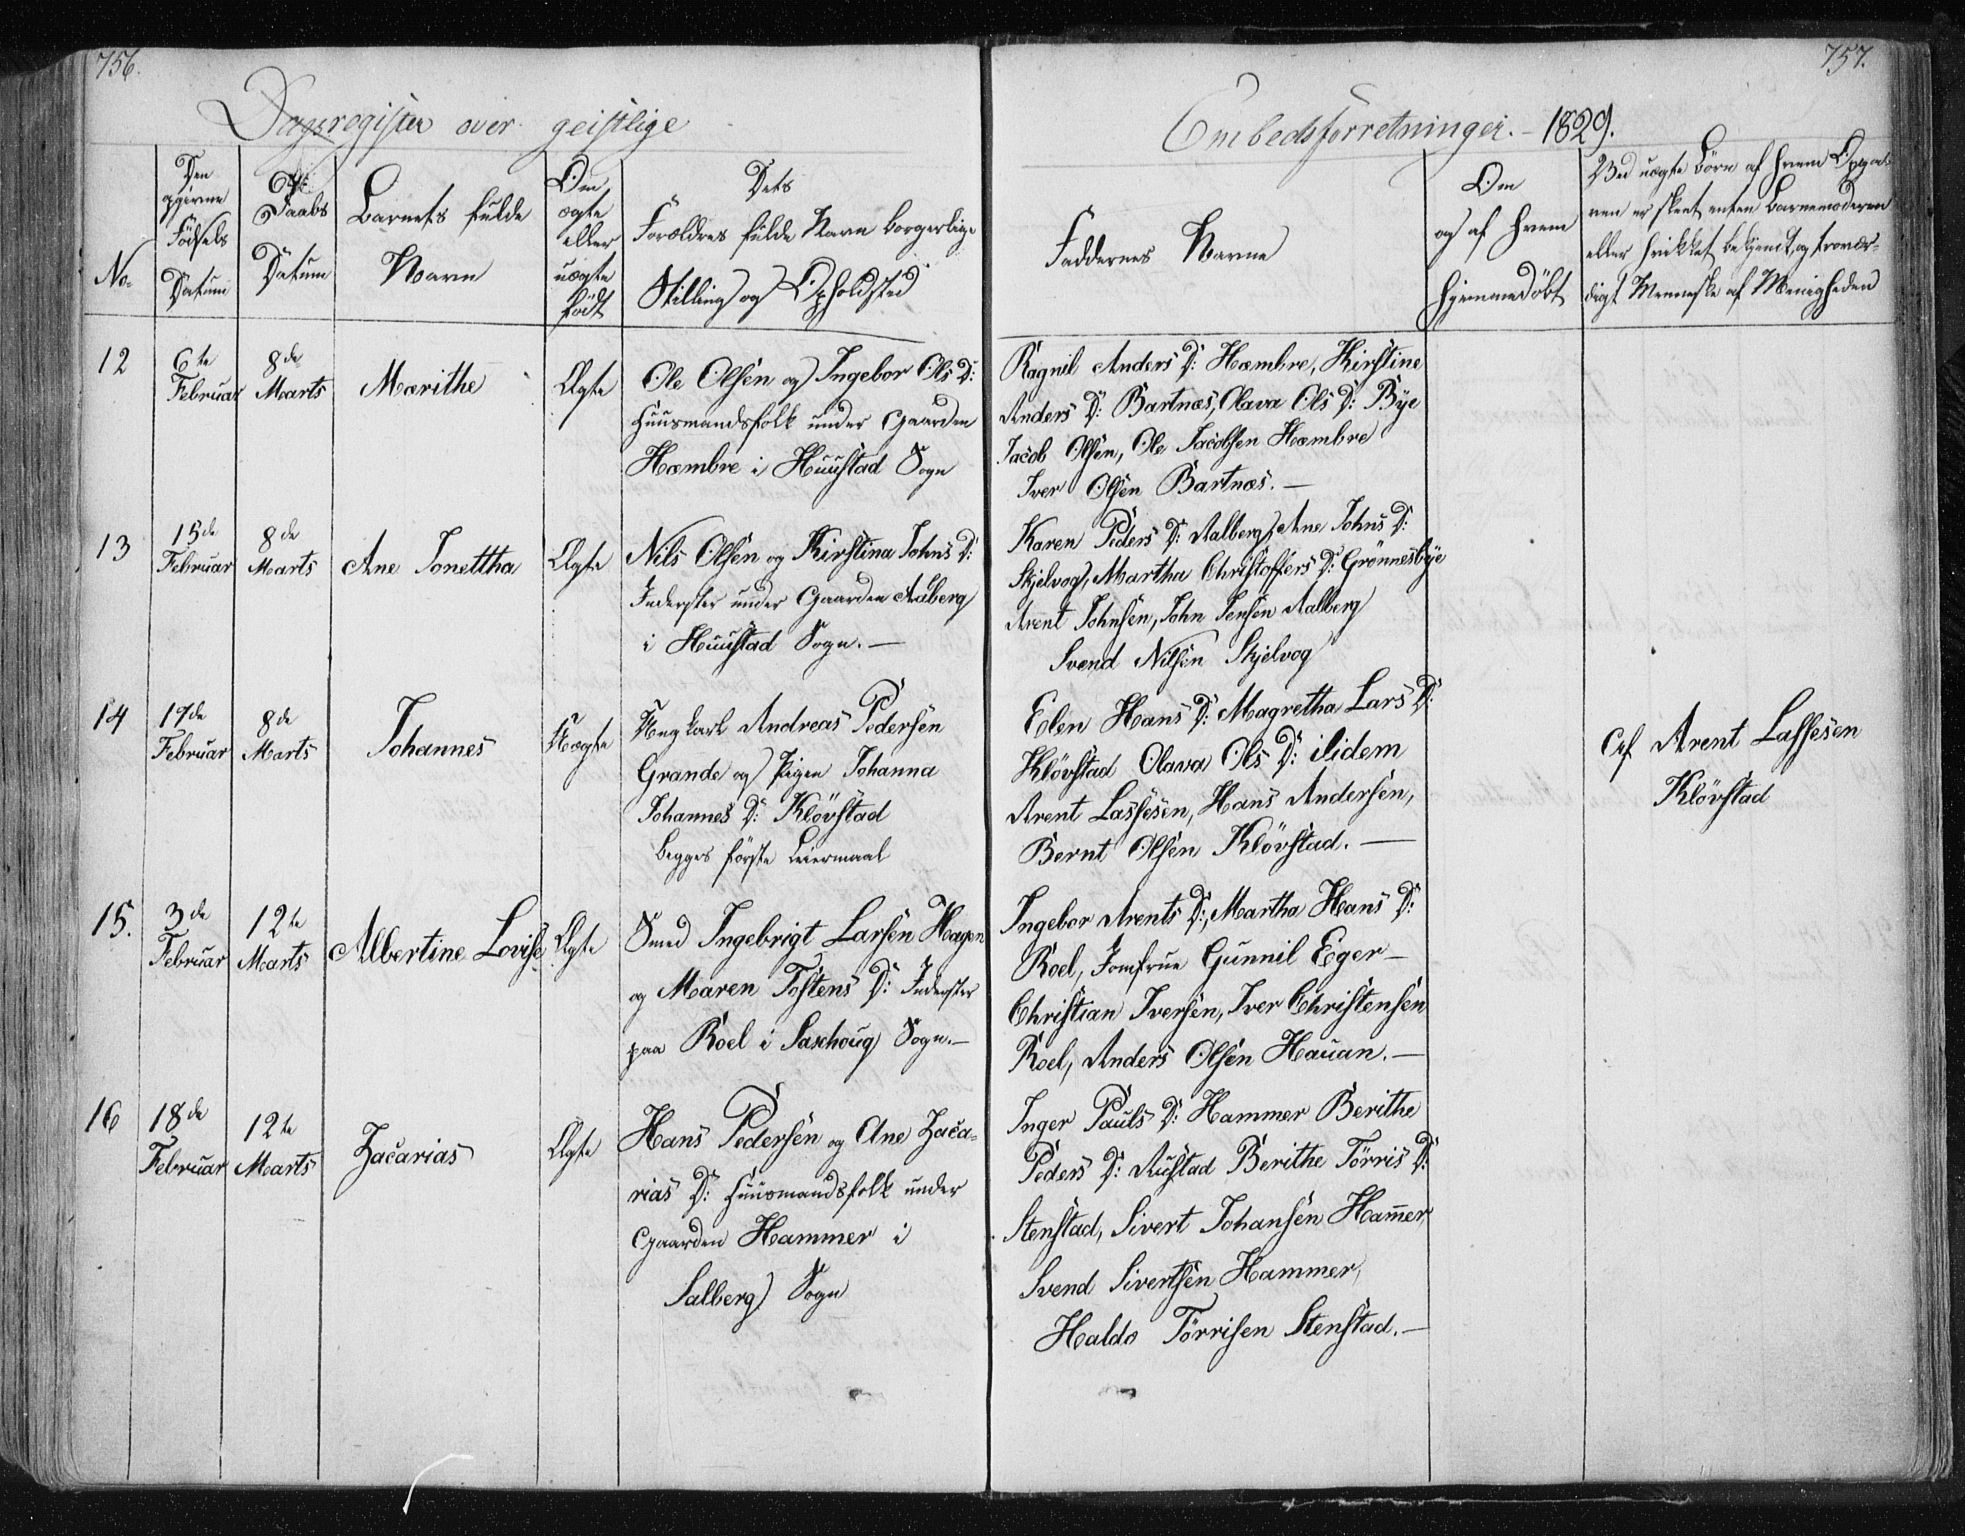 756.
Dagsregister over geistlige
No.
Den
opgivne
Födsels
Datum
Daabs
Datum
Barnets fulde
Navn
Om
ægte
eller
uægte
födt
Dets
Forældres fulde Navn borgerlige
Stilling og Opholdsted
12
6te
Februar
8de
Marts
Marithe
Ægte
Ole Olsen og Ingebor Ols D:
Huusmandsfolk under Gaarden
Hæmbre i Huustad Sogn
13
15de
Februar
8de
Marts
Ane Jonettha
Ægte
Nils Olsen og Kirstina Johns D:
Inderster under Gaarden Aalberg
i Huustad Sogn. —
14
17de
Februar
8de
Marts
Johannes
Uægte
Ungkarl Andreas Pedersen
Grande og Pigen Johanna
Johannes D: Klövstad
begges første Leiermaal
15.
3de
Februar
12te
Marts
Albertine Lovise
Ægte
Smed Ingebrigt Larsen Hagen
og Maren Tostens D: Inderster
paa Roel i Saxhoug Sogn. —
16
18de
Februar
12te
Marts
Zacarias
Ægte
Hans Pedersen og Ane Zaca-
rias D: Huusmandsfolk under
Gaarden Hammer i
Salberg Sogn
757.
Embedsforretninger. – 1829.
Faddernes Navne
Om
og af hvem
hjemmedöbt
Ved uægte Börn af hvem Opga-
ven er skeet enten Barnemoderen
eller hvilket bekjendt og troevær-
digt Menneske af Menigheden
Ragnil Anders D: Hæmbre, Kirstine
Anders D: Bartnæs, Olava Ols D: Bÿe
Jacob Olsen, Ole Jacobsen Hæmbre
Iver Olsen Bartnæs. —
Karen Peders D: Aalberg, Ane Johns D:
Skjelvog, Martha Christoffers D: Grönnesbÿe
Arent Johnsen, John Jensen Aalberg
Svend Nilsen Skjelvog
Elen Hans D: Magretha Lars D:
Klövstad Olava Ols D: ibidem
Arent Lassesen, Hans Andersen,
Bernt Olsen Klövstad. —
Arent Lassesen
Klövstad
Ingebor Arents D:, Martha Hans D:
Roel, Jomfrue Gunnil Eger —
Christian Iversen, Iver Christensen
Roel, Anders Olsen Hauan. —
Inger Pauls D: Hammer Berithe
Peders D: Rustad Berithe Törris D:
Stenstad, Sivert Johansen Ham̄er,
Svend Sivertsen Hammer,
Haldo Törrisen Stenstad. —